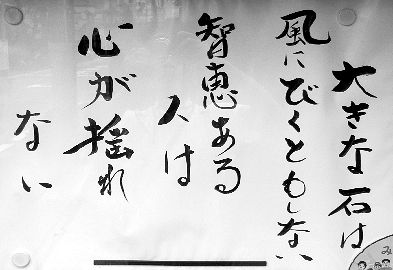 大きな石は
風にびくともしない
智恵ある
人は
心が揺れ
ない
み